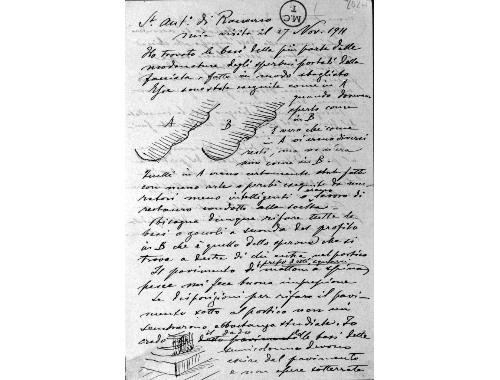 MC
T
St. Ant. di Ranverso
mia visita il 27 Nov. 1911
Ho trovato le basi della più parte delle
modanature degli sguanci portali della
facciata fatte in modo sbagliato
Esse sono state eseguite come in A
quando dovevano
esserlo come
in B
A B
È vero che come
in A vi erano diversi
resti, ma non era
non come in B.
Quelli in A erano certamente stati fatti
con meno arte e perché eseguiti da
ratori meno intelligenti
restauro condotto alla
Bisogna dunque rifare tutte le
basi a seconda del profilo
in B che è quello dello sperone che si
trova a destra di chi entra nel portico
Il pavimento di mattoni a spina
pesce mi fece buona impressione
Le disposizioni per rifare il pavi-
mento sotto al portico non mi
sembrarono abbastanza studiate. Io
credo il dado le basi delle
semicolonne devono
uscire dal pavimento
e non essere sotterrate